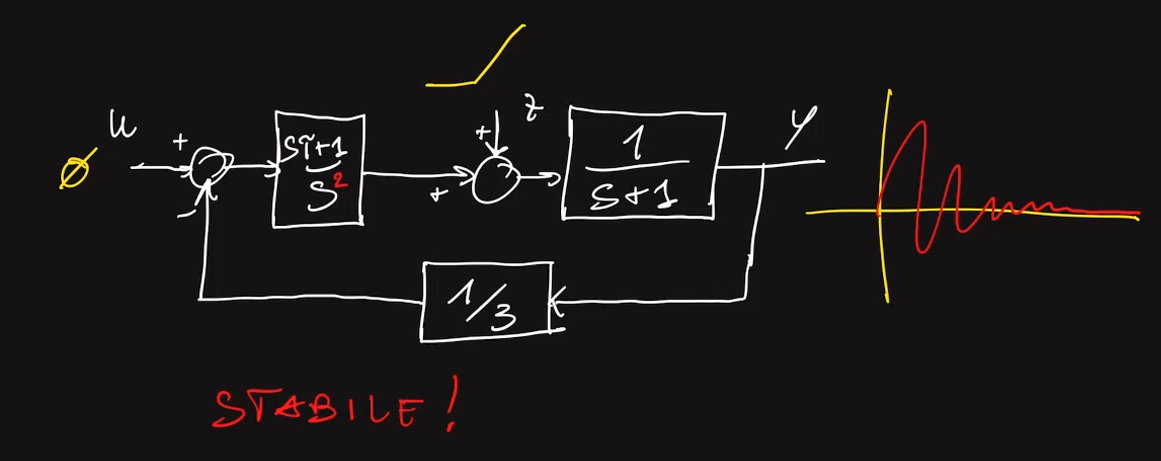 u
+
-
sτ+1
s²
+
+
z
1
s+1
y
1/3
STABILE!